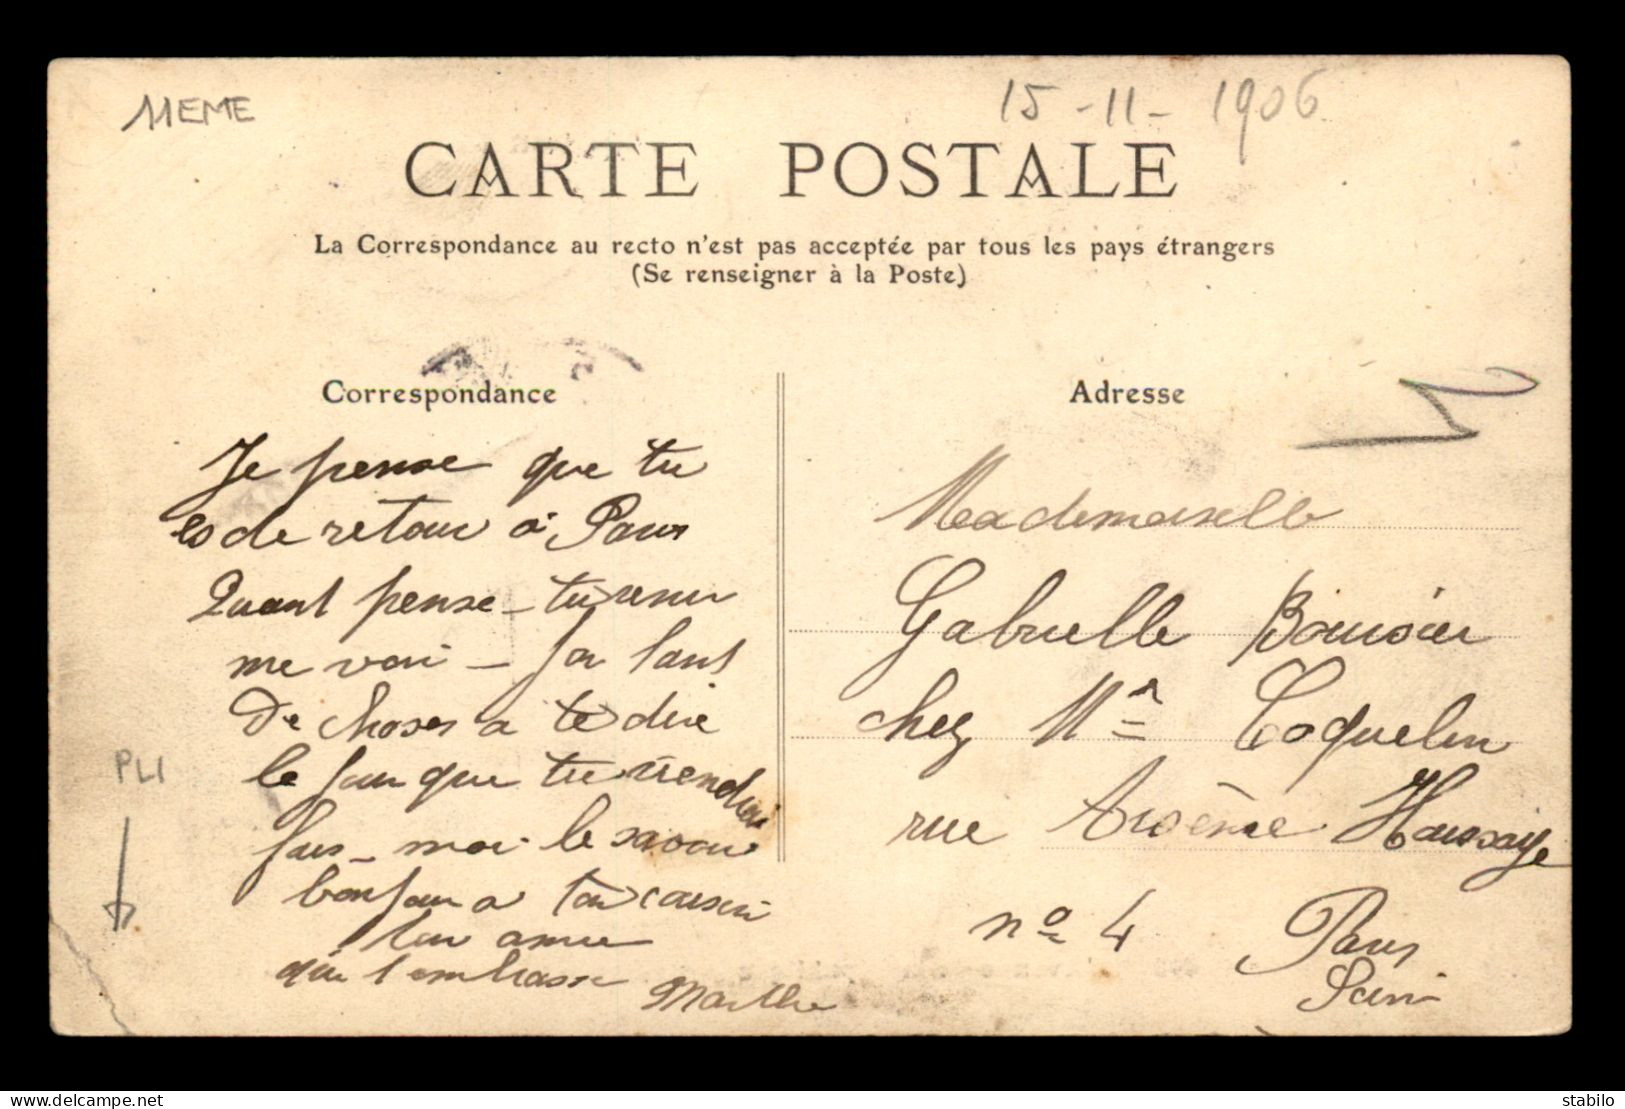 11EME
15-11-1906
CARTE POSTALE
La Correspondance au recto n'est pas acceptée par tous les pays étrangers
(Se renseigner à la Poste)
Correspondance
Je pense que tu
es de retour à Paris
Quant pense-tu venir
me voir - Ja tant
De choses a te dire
le jour que tu viendras
fais-moi le savoir
bonjour a ton cousin
ton amie
qui t'embrasse
Marthe
PLI
Adresse
Mademoiselle
Gabrielle
chez Mr Coquelin
rue Arsène Houssaye
no 4 Paris
Seine
delcampe.net
stabilo